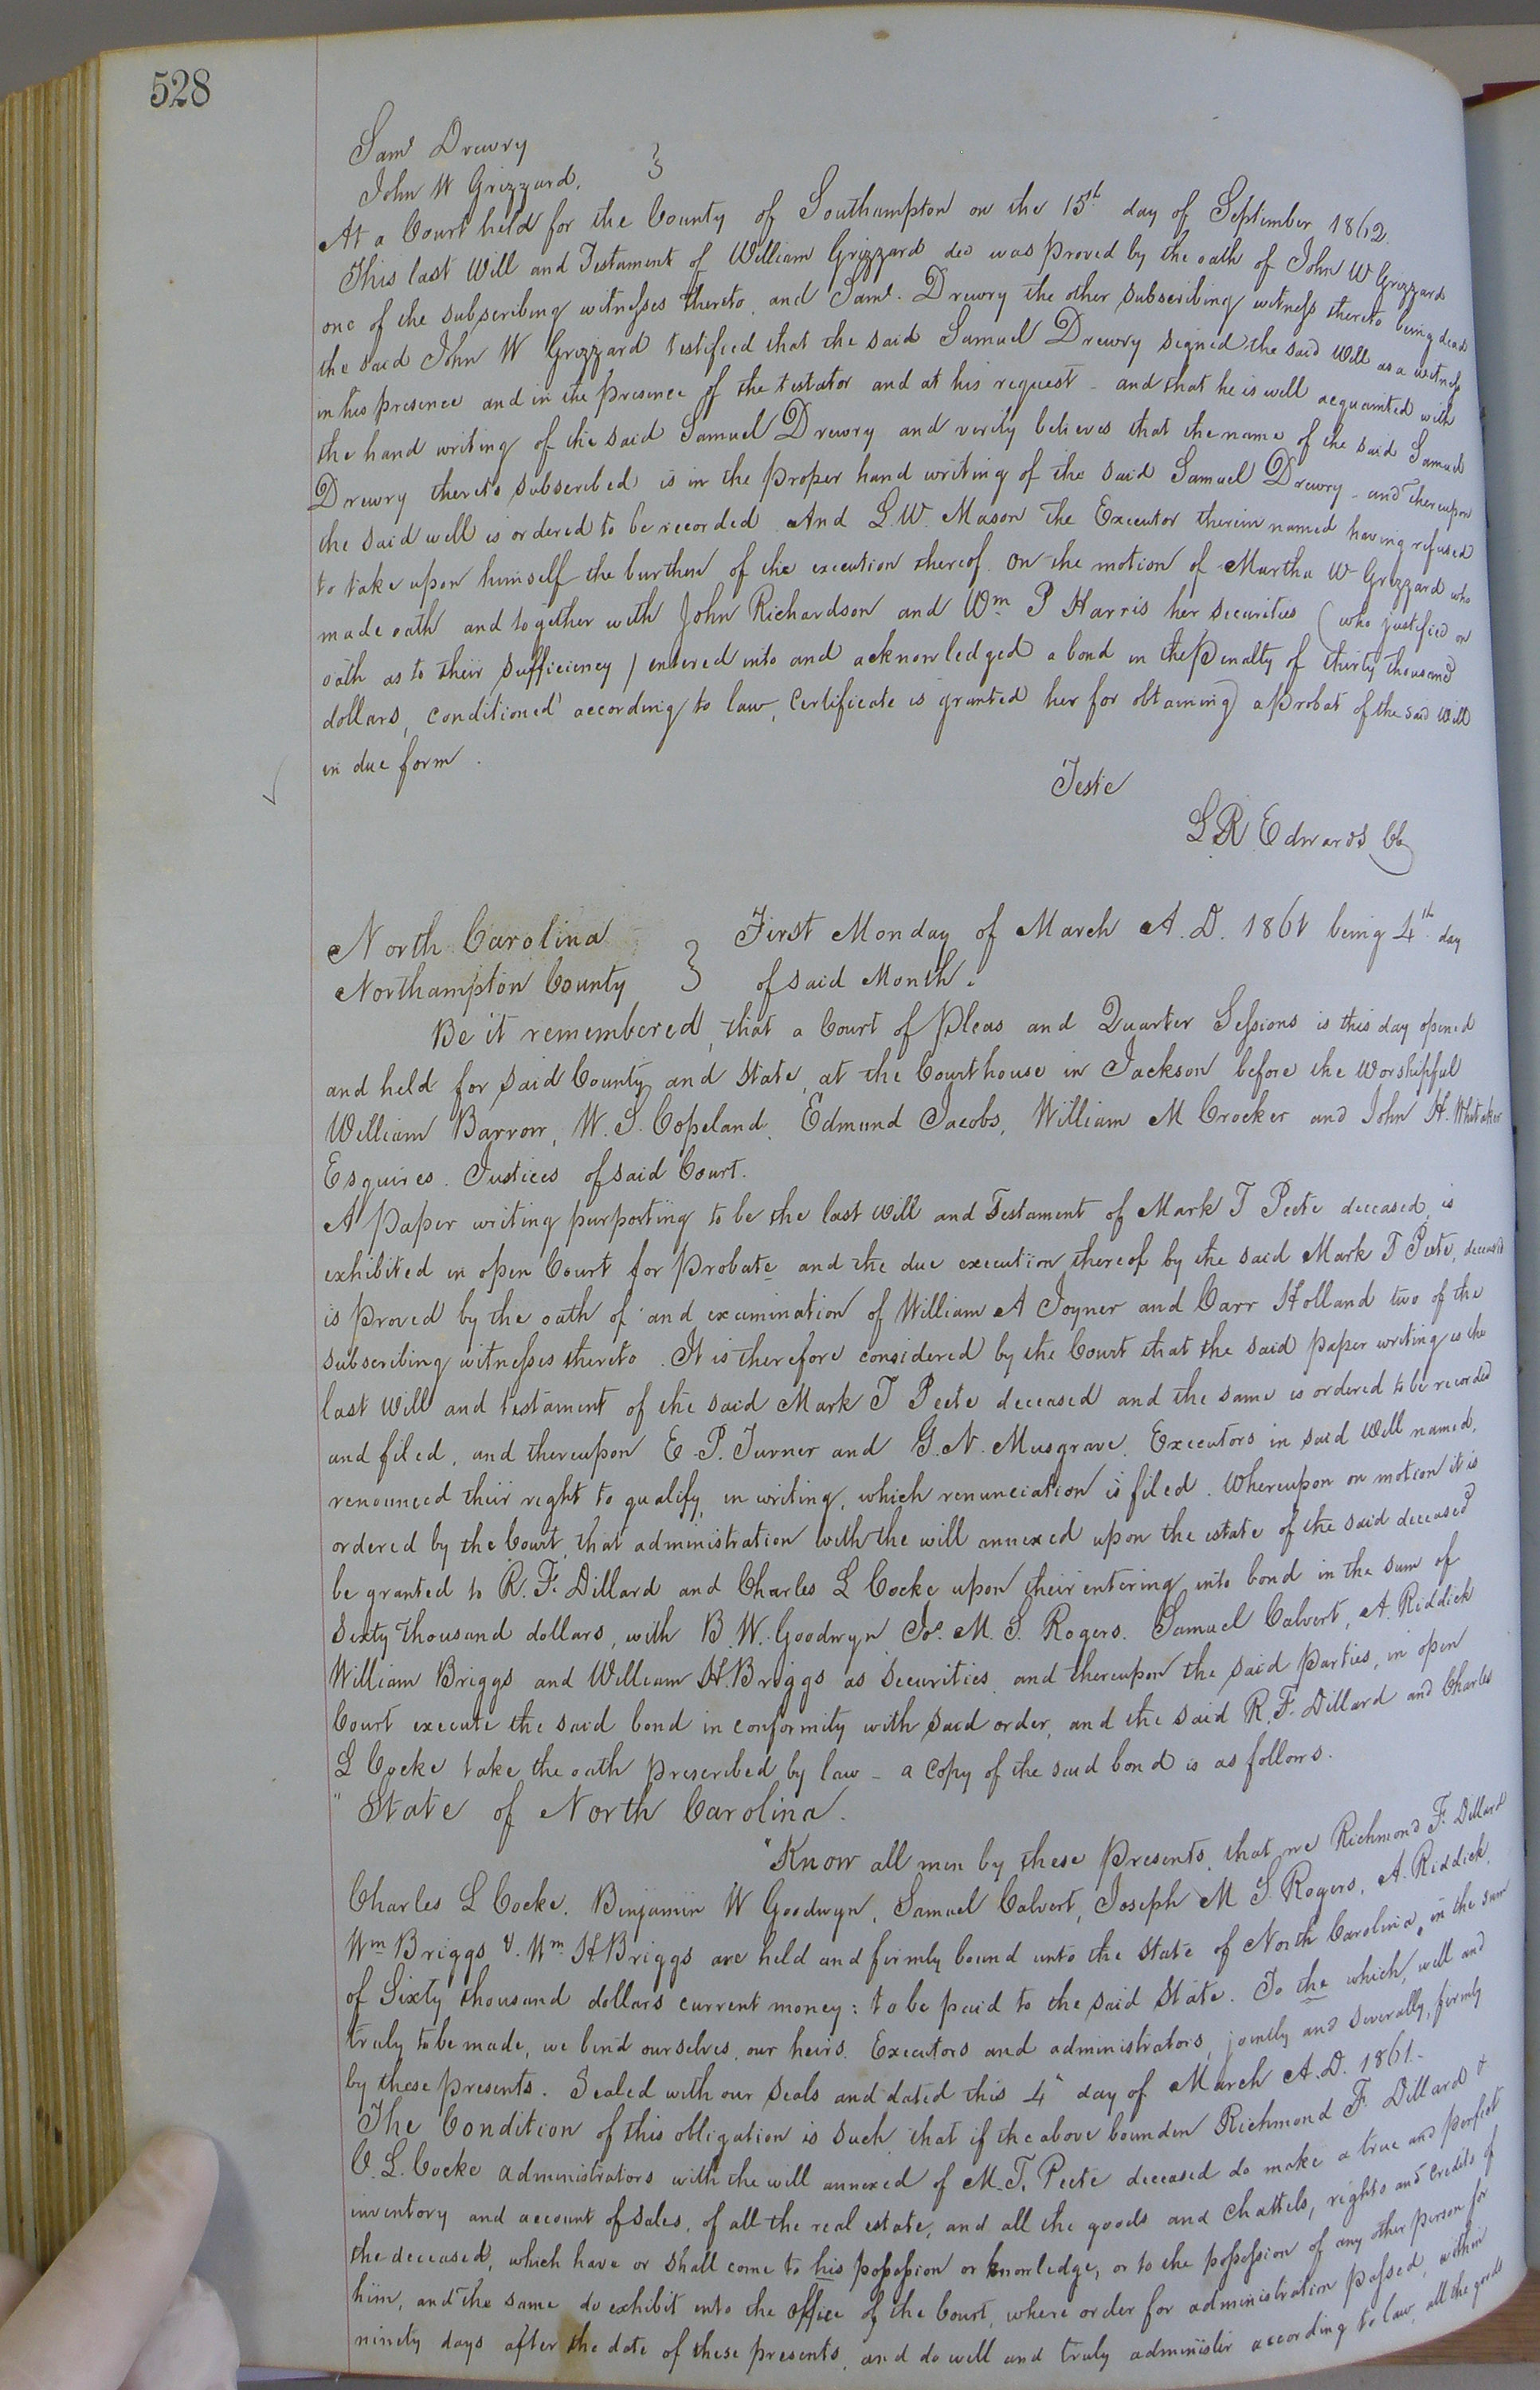 528
Saml Drewry
John W Grizzard. }
At a Court held for the County of Southampton on the 15th day of September 1862.
This last Will and Testament of William Grizzard decd was proved by the oath of John W Grizzard
one of the subscribing witnesses thereto, and Saml. Drewry the other subscribing witness thereto being dead
the said John W Grizzard testified that the said Samuel Drewry signed the said Will as a witness
in his presence and in the presence of the testator and at his request - and that he is well acquainted with
the hand writing of the said Samuel Drewry and verily believes that the name of the said Samuel
Drewry thereto subscribed is in the proper hand writing of the said Samuel Drewry - and thereupon
the said will is ordered to be recorded. And L. W. Mason the Executor therein named having refused
to take upon himself the burthen of the execution thereof. On the motion of Martha W Grizzard who
made oath and together with John Richardson and Wm P Harris her securities (who justified on
oath as to their sufficiency) entered into and acknowledged a bond in the Penalty of thirty thousand
dollars, conditioned according to law, Certificate is granted her for obtaining a probat of the said Will
in due form.
Teste
L R Edwards Cl
North Carolina } First Monday of March A. D. 1861 being 4th day
Northampton County } of said Month.
Be it remembered, that a Court of Pleas and Quarter Sessions is this day opened
and held for said County and State, at the Courthouse in Jackson before the Worshipful
William Barrow, W. S. Copeland, Edmund Jacobs, William M Crocker and John H. Whitaker
Esquires. Justices of said Court.
A paper writing purporting to be the last Will and Testament of Mark T Peete deceased, is
exhibited in open Court for probate and the due execution thereof by the said Mark T Peete, deceased
is proved by the oath of and examination of William A Joyner and Carr Holland two of the
subscribing witnesses thereto. It is therefore considered by the Court that the said paper writing is the
last Will and testament of the said Mark T Peete deceased and the same is ordered to be recorded
and filed, and thereupon E. P. Turner and G. N. Musgrave, Executors in said Will named,
renounced their right to qualify, in writing, which renunciation is filed. Whereupon on motion it is
ordered by the Court, that administration with the will annexed upon the estate of the said deceased
be granted to R. F. Dillard and Charles L Cocke upon their entering into bond in the sum of
Sixty thousand dollars, with B. W. Goodwyn, Jos. M. S. Rogers. Samuel Calvert, A. Riddick
William Briggs and William H. Briggs as Securities and thereupon the said parties, in open
Court execute the said bond in conformity with said order, and the said R. F. Dillard and Charles
L Cocke take the oath prescribed by law - a Copy of the said bond is as follows.
" State of North Carolina.
"Know all men by these Presents, that we Richmond F. Dillard
Charles L Cocke. Benjamin W Goodwyn, Samuel Calvert, Joseph M S. Rogers, A. Riddick,
Wm Briggs & Wm H Briggs are held and firmly bound unto the State of North Carolina, in the sum
of Sixty thousand dollars current money: to be paid to the said State. To the which, well and
truly to be made, we bind ourselves, our heirs. Executors and administrators, jointly and severally, firmly
by these presents. Sealed with our seals and dated this 4" day of March A. D. 1861.
The Condition of this obligation is such, that if the above bounden Richmond F. Dillard &
C. L. Cocke administrators with the will annexed of M. T. Peete deceased do make a true and perfect
inventory and account of sales, of all the real estate, and all the goods and Chattels, rights and credits of
the deceased, which have or shall come to his possession or knowledge, or to the possession of any other person for
him, and the same do exhibit into the office of the Court, where order for administration passed, within
ninety days after the date of these presents, and do well and truly administer according to law, all the goods